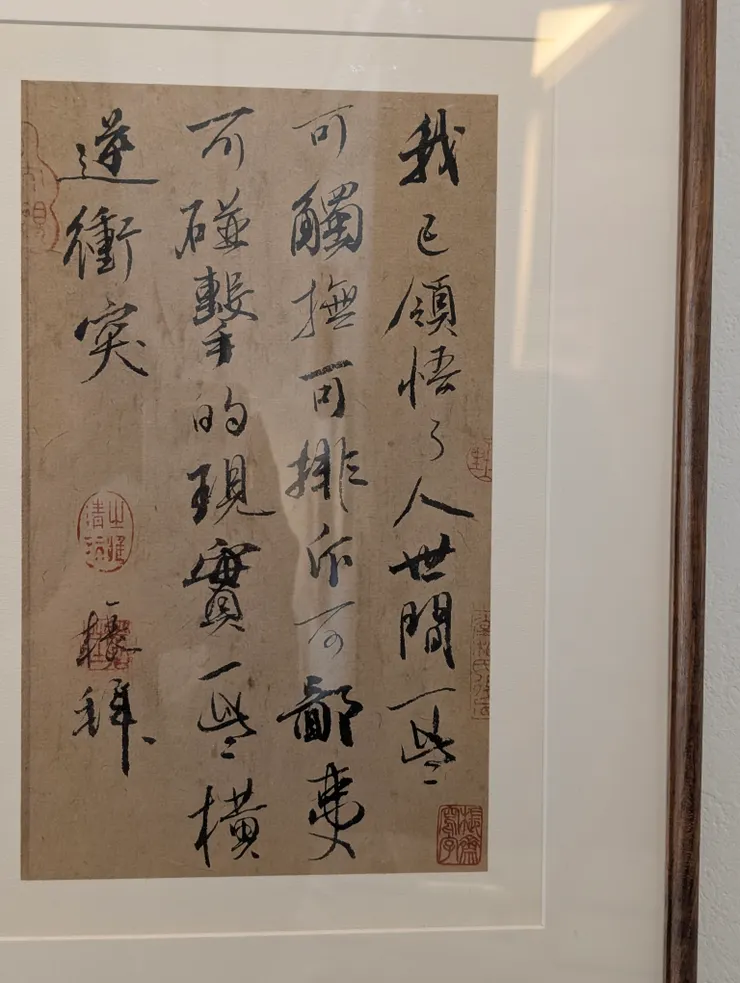 我已領悟了人世間一些
可觸撫可排斥可鄙
可碰擊的現實一些橫
逆衝突
拜